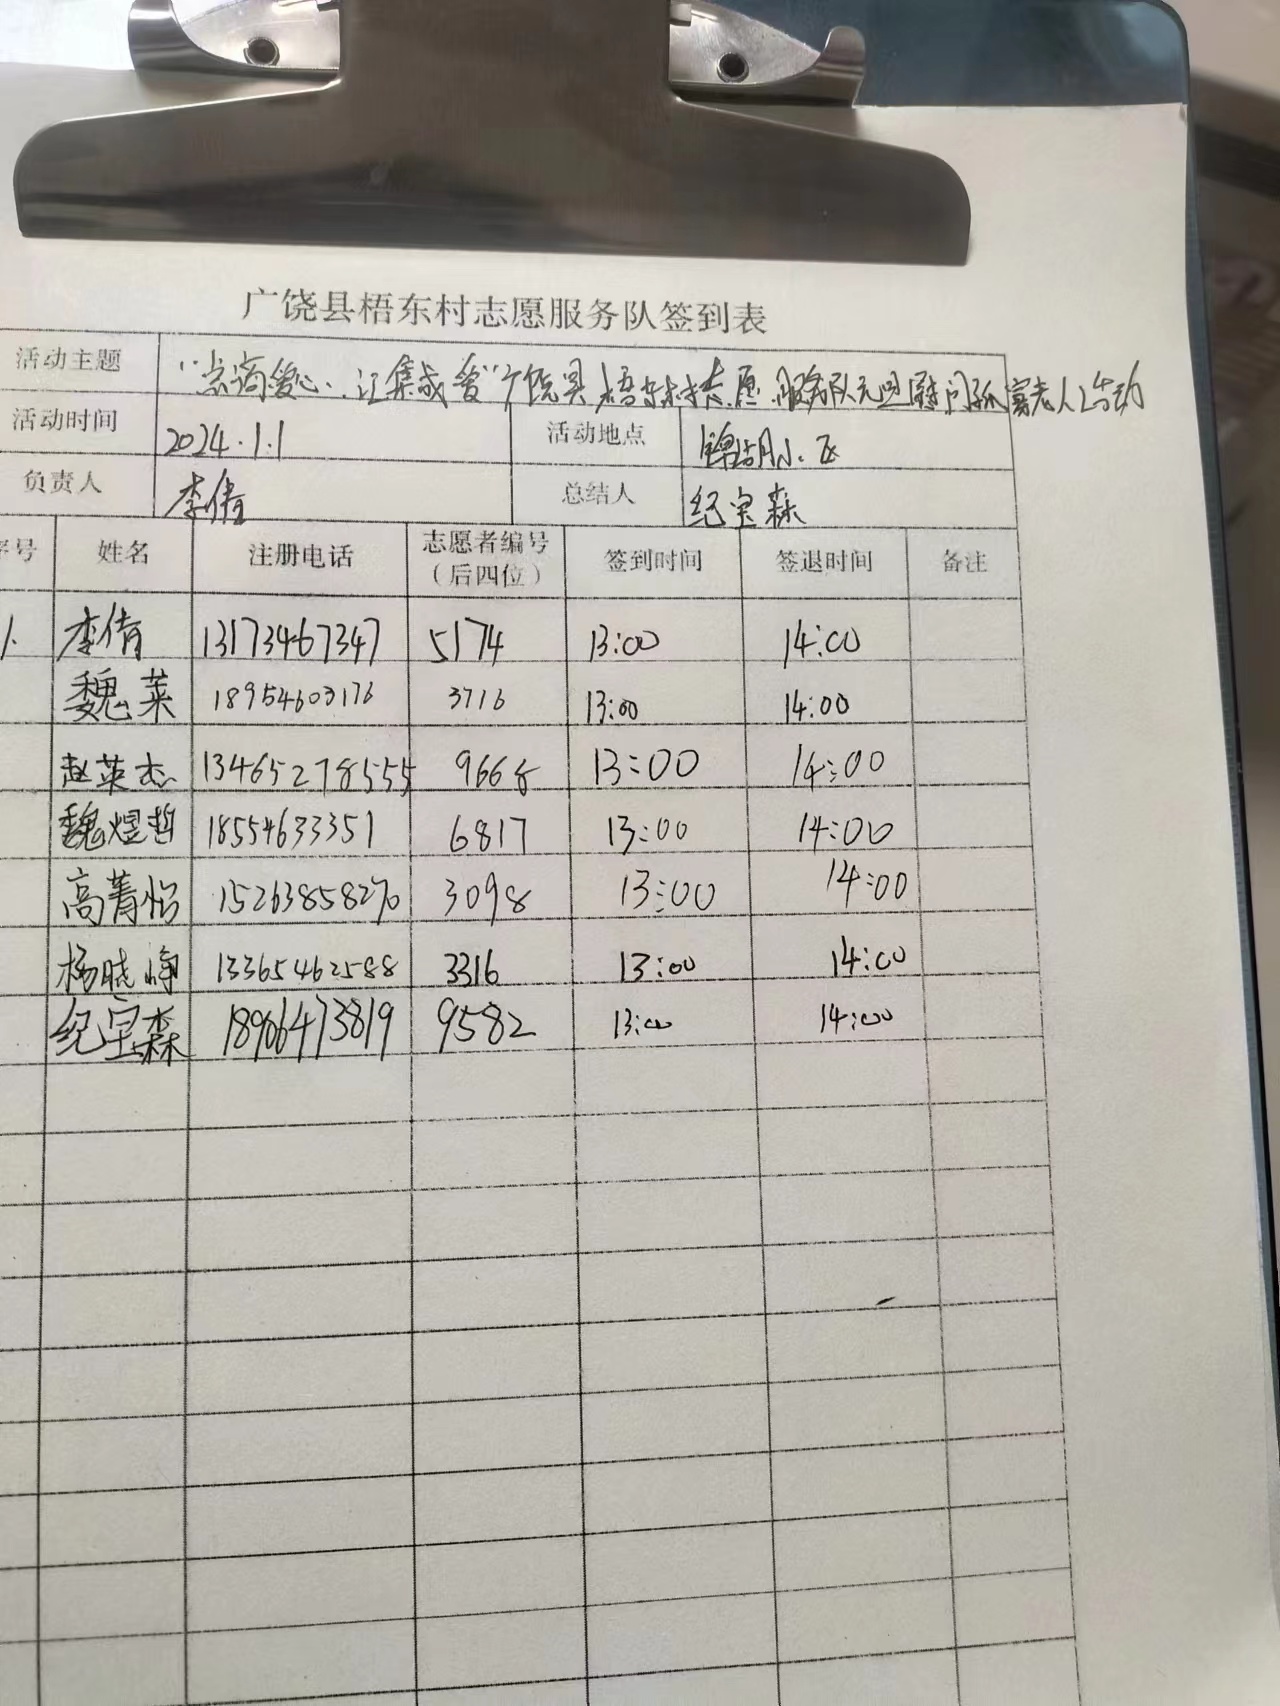 广饶县梧东村志愿服务队签到表
活动主题 爱心 汇集成爱"广饶县梧东村志愿服务队元旦慰问孤寡老人活动
活动时间 2024.1.1 活动地点 锦湖小区
负责人 李倩 总结人 纪宝森
序号 姓名 注册电话 志愿者编号（后四位） 签到时间 签退时间 备注
1. 李倩 13173467347 5174 13:00 14:00
魏莱 18954603176 3716 13:00 14:00
赵英杰 13465278555 9668 13:00 14:00
魏煜哲 18554633351 6817 13:00 14:00
高菁怡 15263858270 3098 13:00 14:00
杨晓峥 13365462588 3316 13:00 14:00
纪宝森 18906473819 9582 13:00 14:00